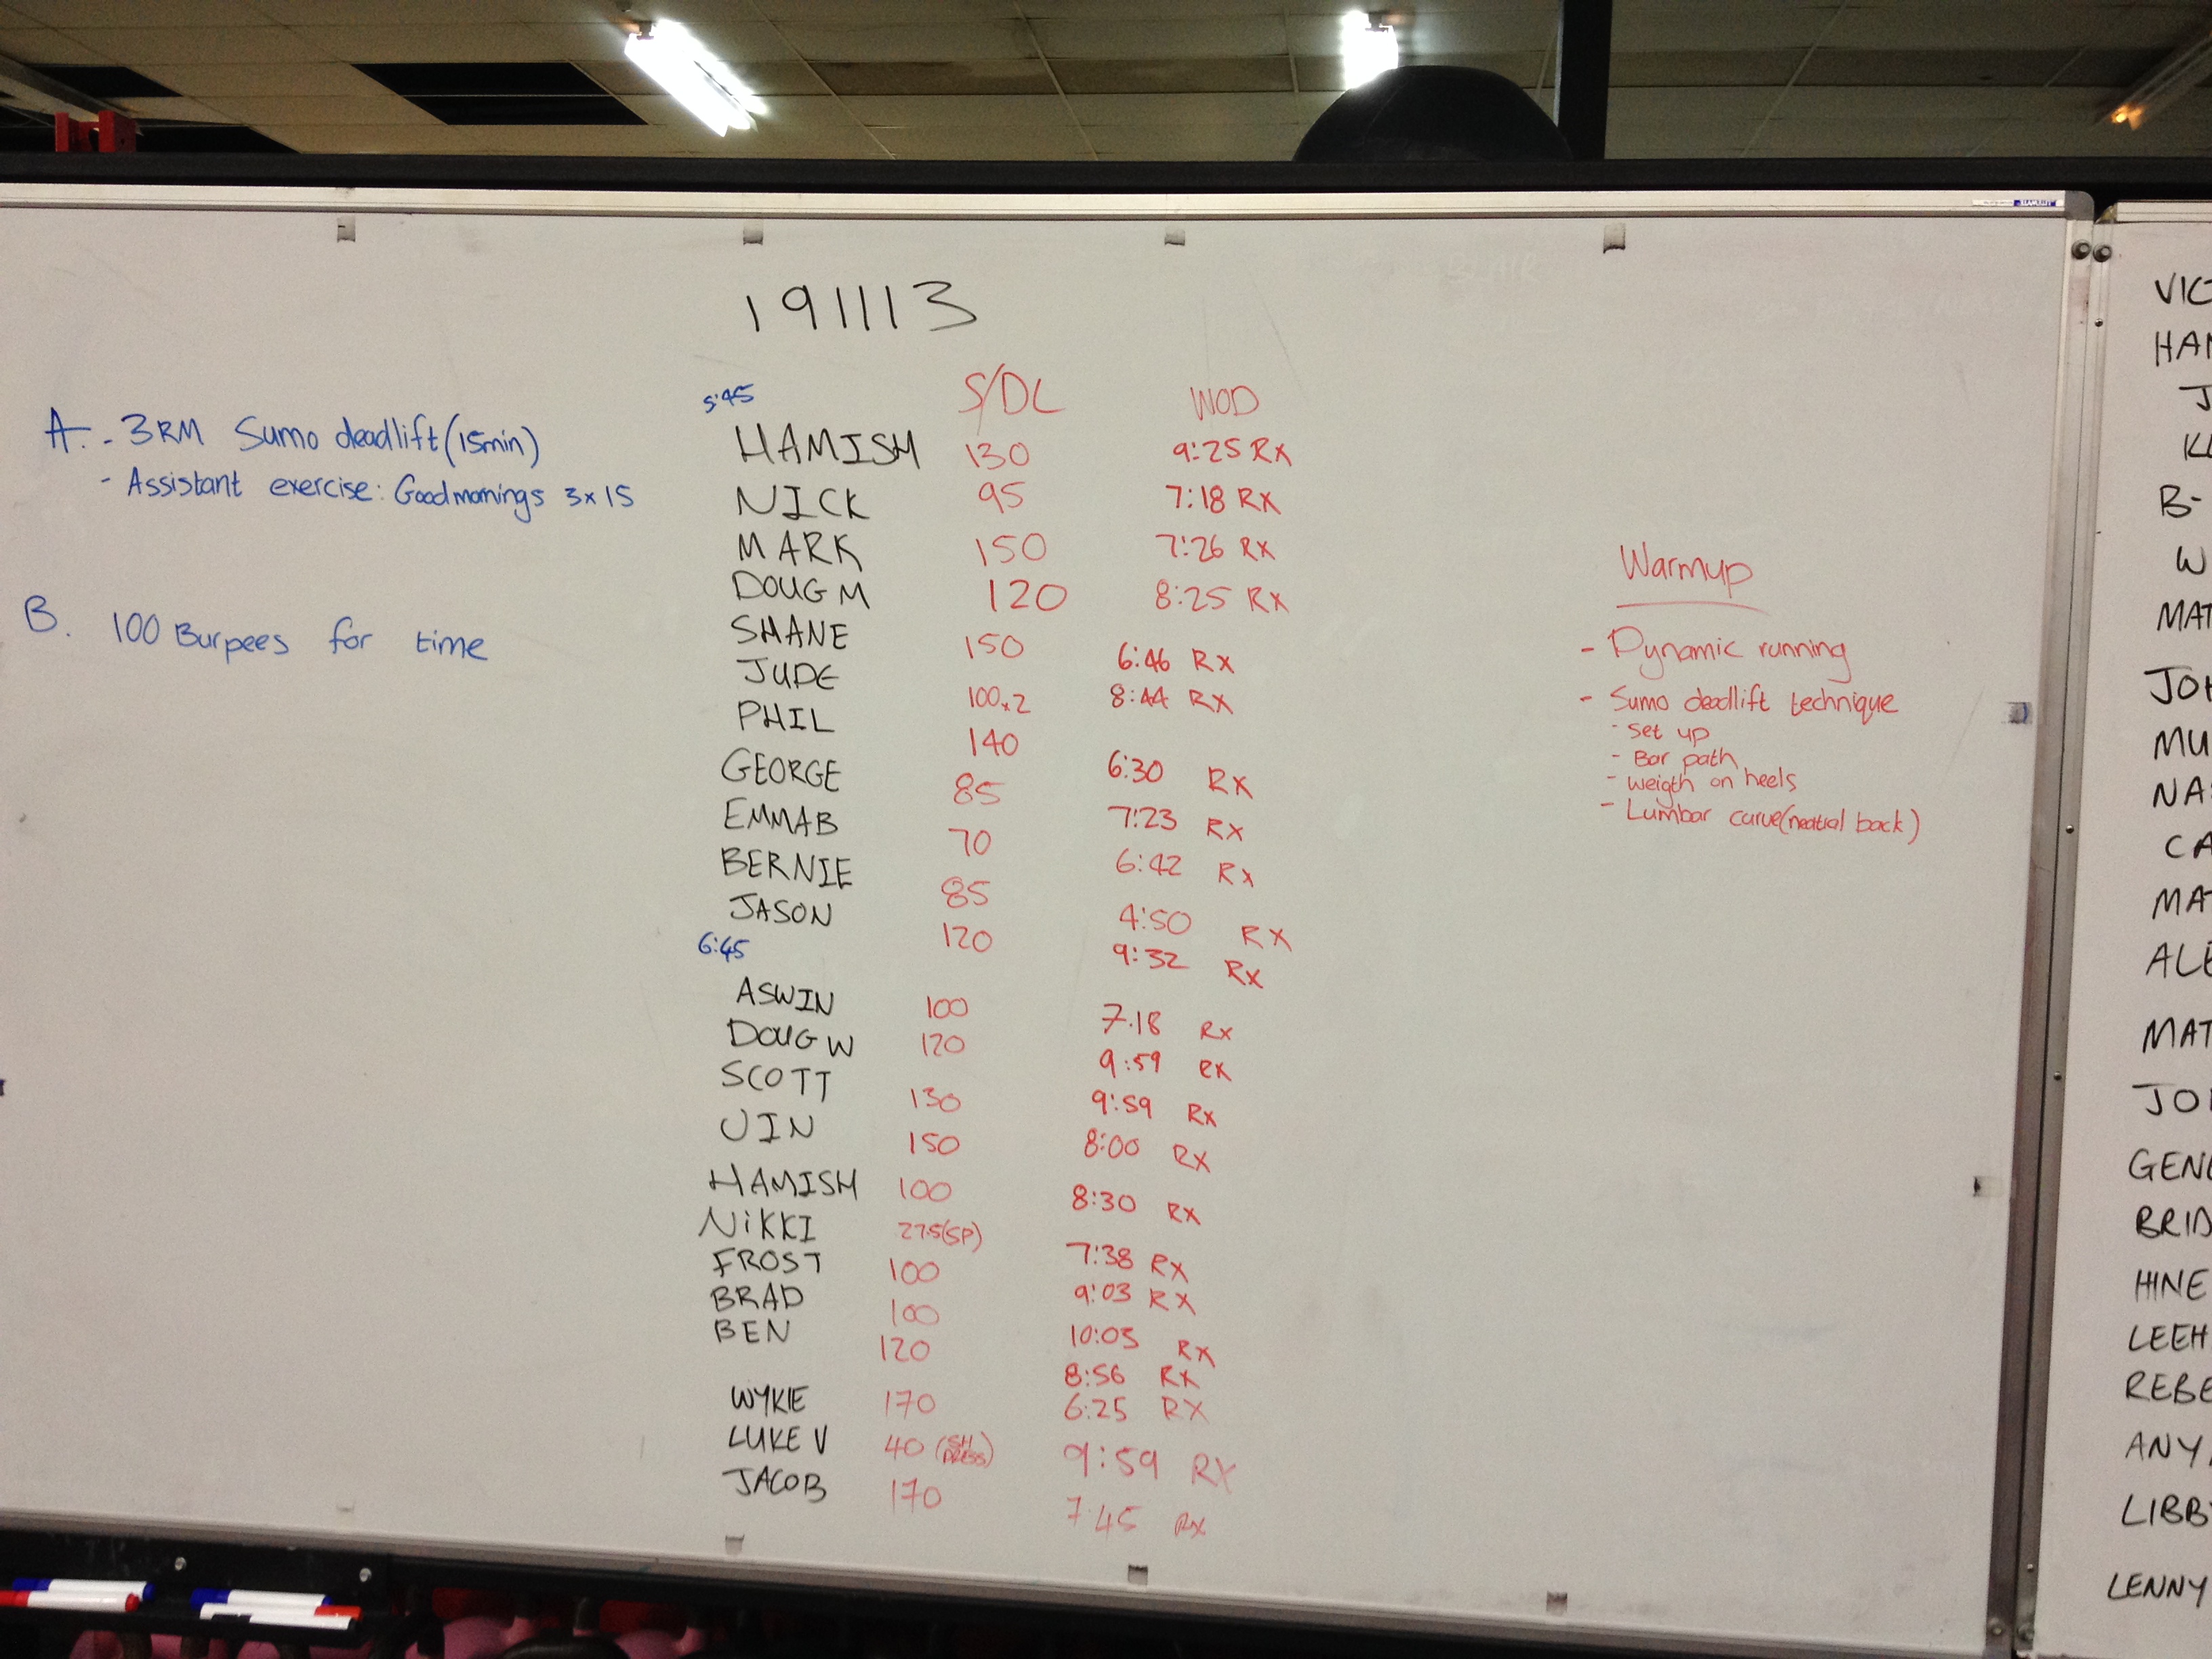 191113
A. - 3RM Sumo deadlift (15min)
- Assistant exercise: Goodmornings 3x15
B. 100 Burpees for time
5:45 S/DL WOD
HAMISH 130 9:25 RX
NICK 95 7:18 RX
MARK 150 7:26 RX
DOUG M 120 8:25 RX
SHANE 150 6:46 RX
JUDE 100x2 8:44 RX
PHIL 140 6:30 RX
GEORGE 85 7:23 RX
EMMA B 70 6:42 RX
BERNIE 85 4:50 RX
JASON 120 9:32 RX
6:45
ASWIN 100 7.18 RX
DOUG W 120 9:59 RX
SCOTT 130 9:59 RX
UIN 150 8:00 RX
HAMISH 100 8:30 RX
NiKKI 27.5(SP) 7:38 RX
FROST 100 9:03 RX
BRAD 100 10:05 RX
BEN 120 8:56 RX
WYKIE 170 6:25 RX
LUKE V 40 (SH PRESS) 9:59 RX
JACOB 170 7:45 RX
Warmup
- Dynamic running
- Sumo deadlift technique
- set up
- Bar path
- weigth on heels
- Lumbar curve(neatral back)
VIC
HAM
J
KL
B-
W
MAT
JOH
MU
NA
CA
MAT
ALE
MAT
JO
GEN
BRID
HINE
LEEH
REBE
ANY
LIBB
LENNY